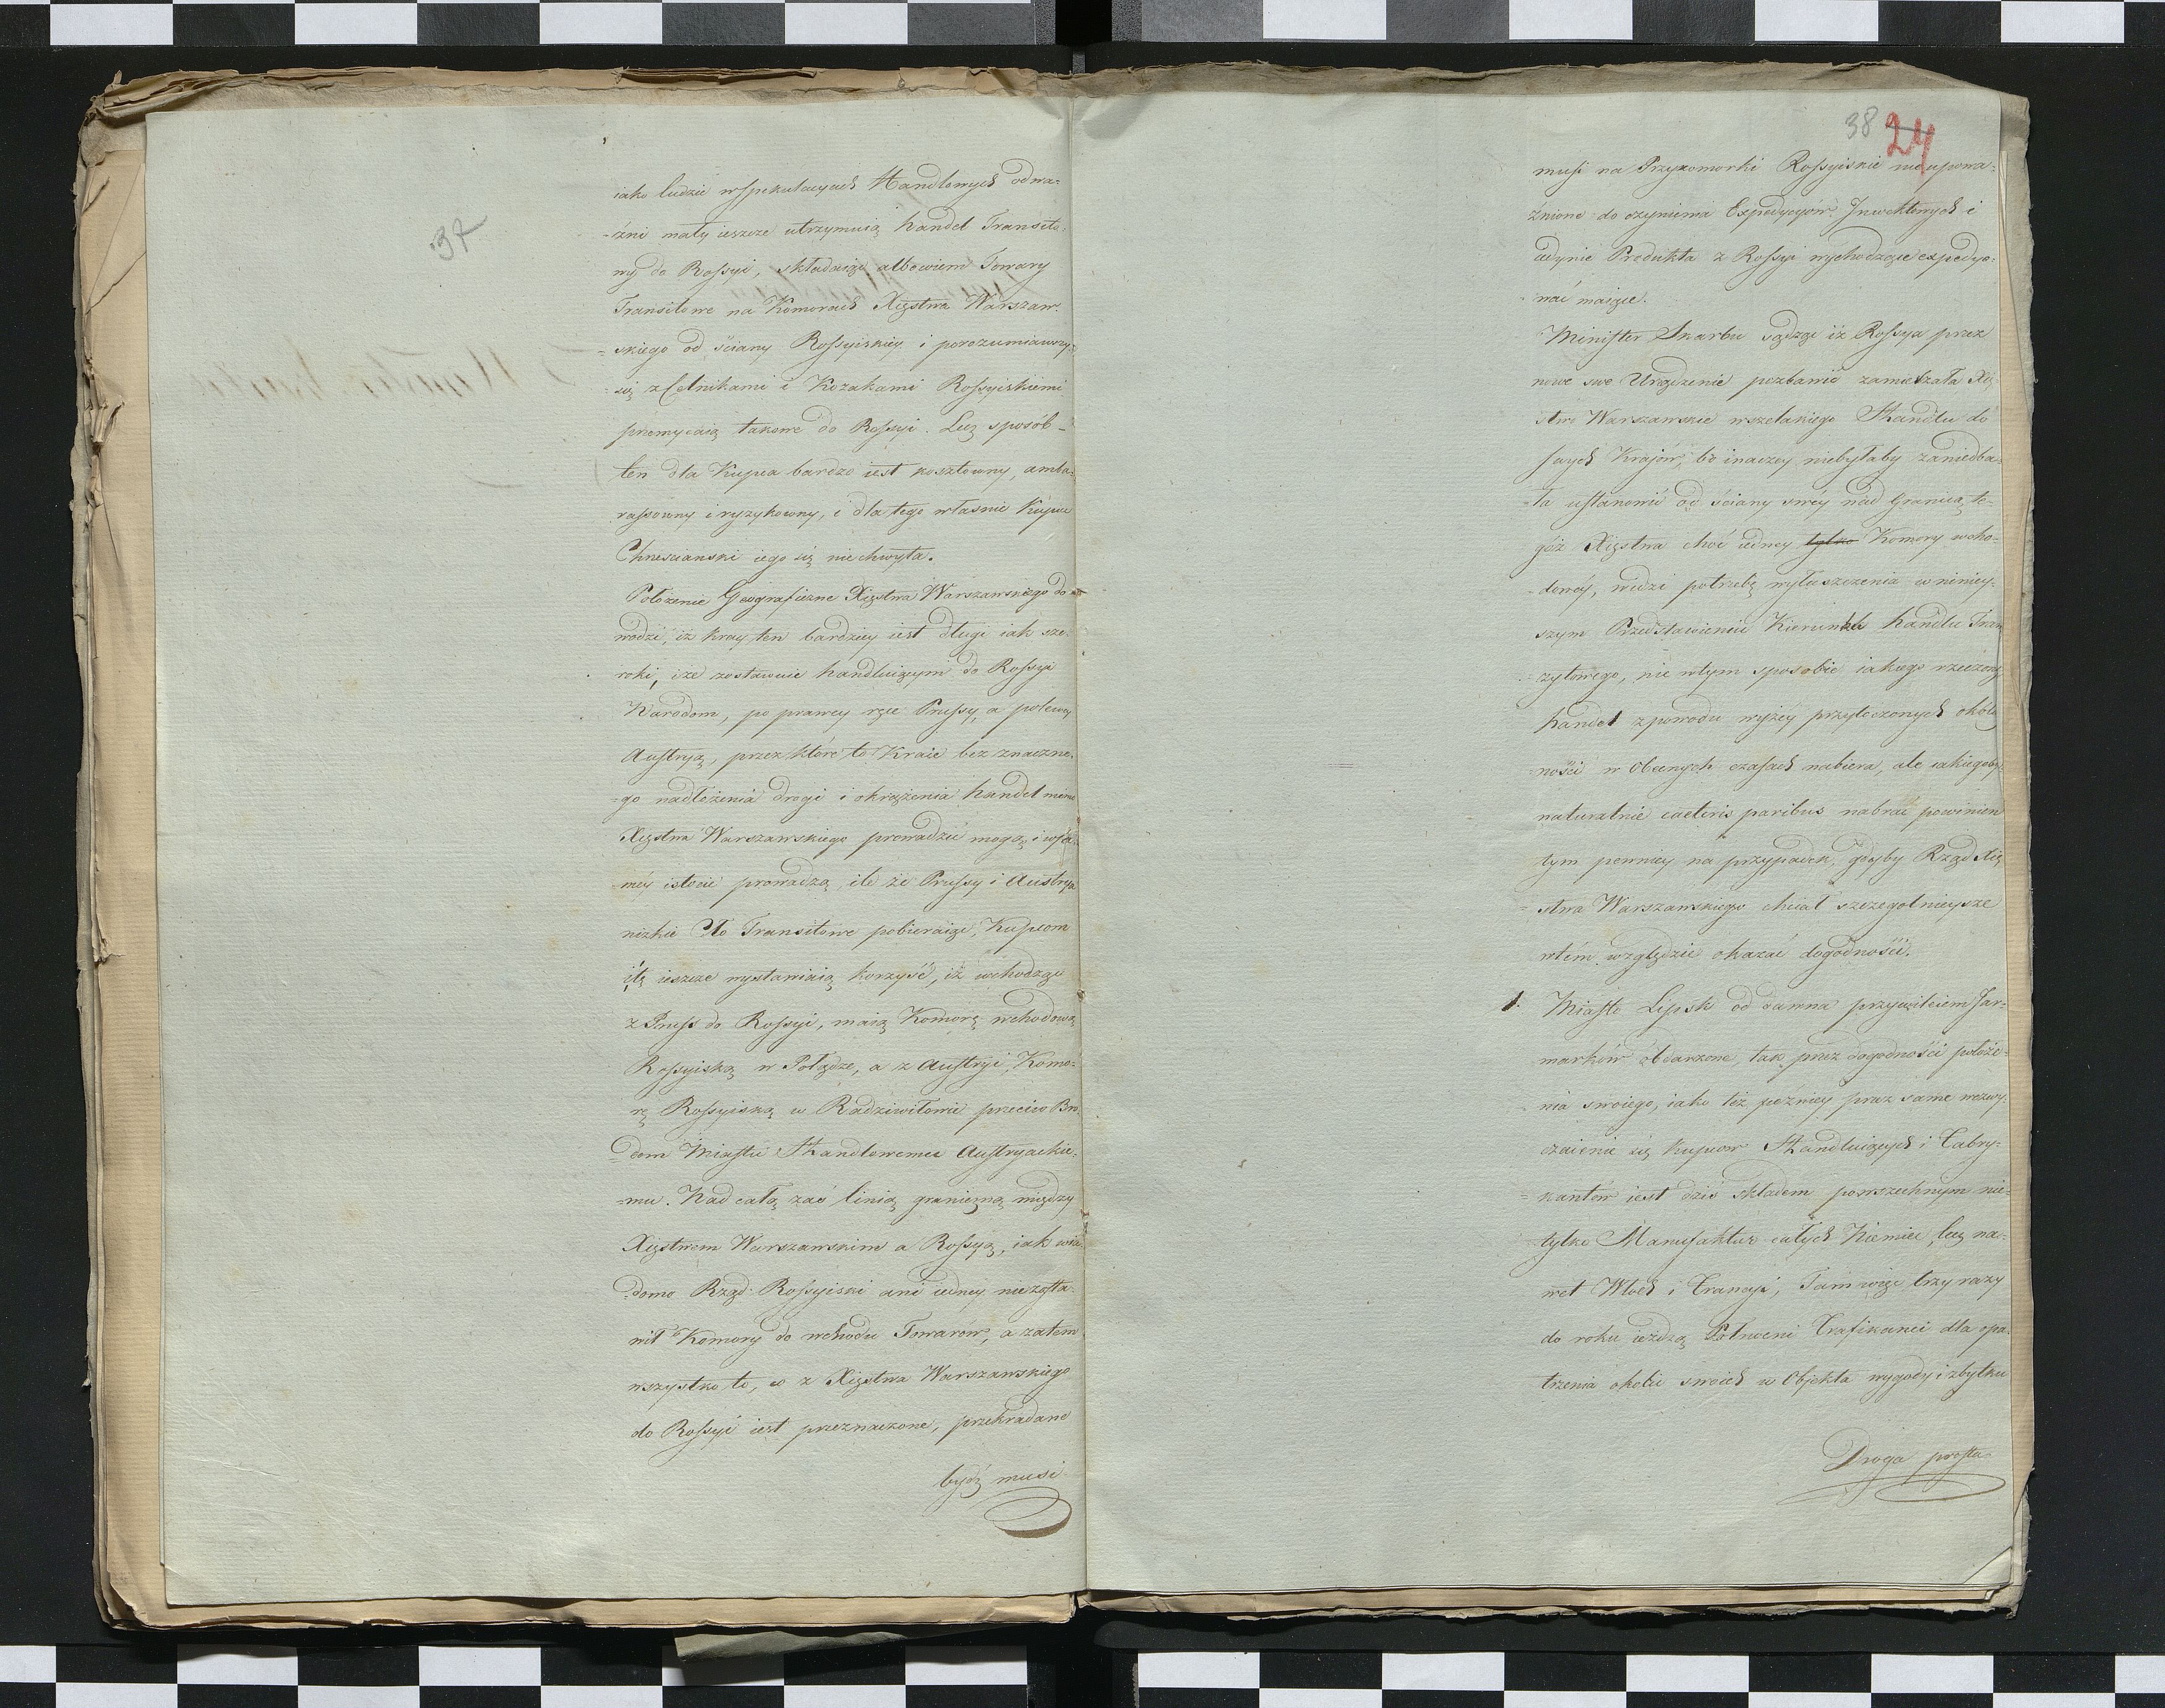 37
iako ludzie w spekulacyach Handlowych odwa=
=żni mały ieszcze utrzymuią handel Transito=
wy do Rossyi, składaiąc albowiem Towary
Transitowe na Komorach Xięstwa Warszaw=
=skiego od ściany Rossyiskiey i porozumiawszy
się z Celnikami i Kozakami Rossyiskiemi
przemycaią takowe do Rossyi. Lecz sposób
ten dla Kupca bardzo iest kosztowny, amba=
rassowny i ryzykowny, i dla tego własnie Kupiec
Chrescianski iego się nie chwyta.
Położenie Geograficzne Xięstwa Warszawskiego do=
wodzi, iż kray ten bardziey iest długi iak sze=
roki, i że zostawuie handluiącym do Rossyi
Narodom, po prawey ręce Prussy, a po lewey
Austryą, przez które to Kraie bez znaczne=
=go nadłożenia drogi i okrążenia handel mimo
Xięstwa Warszawskiego prowadzić mogą, i w sa=
méy istocie prowadzą, ile że Prussy i Austrya
nizkie Cło Transitowe pobieraiąc, Kupcom
tę ieszcze wystawiaią korzyść, iż wchodząc
z Pruss do Rossyi, maią Komorę wchodową
Rossyiską w Połądze, a z Austryi, Komo=
rę Rossyiską w Radziwiłowie przeciw Bro=
=dom Miastu Handlowemu Austryackie=
=mu. Nad całą zaś linią graniczną między
Xięstwem Warszawskim a Rossyą, iak wia=
=domo Rząd Rossyiski ani iedney nie zosta=
wił Komory do wchodu Towarów, a zatem
wszystko to, co z Xięstwa Warszawskiego
do Rossyi iest przeznaczone, przekradane
bydź musi
38 24
musi na Przykomorki Rossyiskie nieupowa=
żnione do czynienia Expedycyów Inwektowych i
iedynie Produkta z Rossyi wychodzące expedyo=
=wać maiące.
Minister Skarbu sądząc iż Rossya przez
nowe swe Urządzenie pozbawić zamierzała Xię
stwo Warszawskie wszelakiego Handlu do
swych Kraiów, bo inaczey niebyłaby zaniedba=
=ła ustanowić od ściany swéy nad Granicą te=
goż Xięstwa choć iedney tylko Komory wcho=
=dowéy, widzi potrzebę wyłuszczenia w niniey=
szym Przedstawieniu Kierunku handlu Tran
zytowego, nie w tym sposobie iakiego rzeczony
handel z powodu wyżéy przytoczonych okoli
=ności w obecnych czasach nabiera, ale iakiegoby
naturalnie caeteris paribus nabrać powinien
tym pewniey na przypadek, gdyby Rząd Xię
=stwa Warszawskiego chciał szczegolnieysze
w tém względzie okazać dogodności.
1. Miasto Lipsk od dawna przywileiem Jar=
marków obdarzone, tak przez dogodności położe=
nia swoiego, iako też poźniey przez same wezwy=
czaienie się kupców Handluiących i Fabry=
=kantów iest dziś składem powszechnym nie=
tylko Manufaktur całych Niemiec, lecz na=
wet Włoch i Francyi, Tam więc trzy razy
do roku ieżdżą Północni Trafikanci dla opa=
trzenia okolic swoich w Objekta wygody i zbytku
Droga prosta